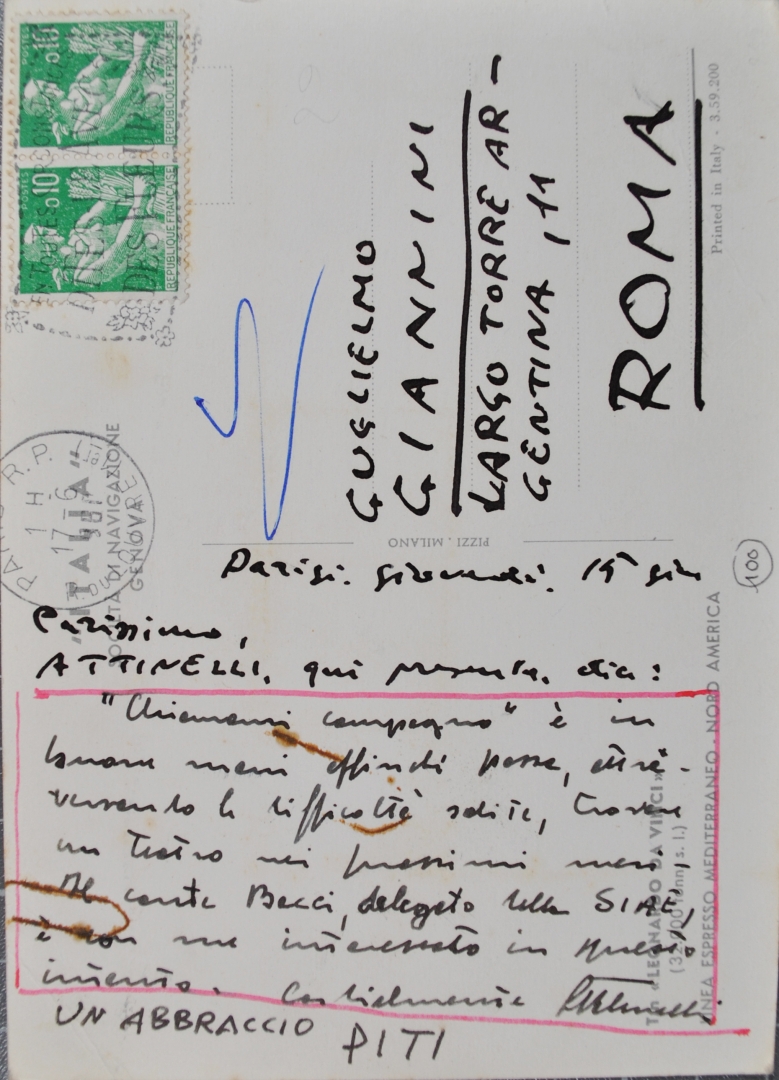 POSTES 0,10
REPUBLIQUE FRANÇAISE
POSTES 0,10
REPUBLIQUE FRANÇAISE
DES FLEURS
PARIS R.P.
1 H
17-6
"ITALIA"
SOCIETÀ DI NAVIGAZIONE
GENOVA
GUGLIELMO
GIANNINI
LARGO TORRE AR-
GENTINA, 11
ROMA
Printed in Italy - 3.59.200
PIZZI - MILANO
100
Parigi. giovedì. 15 giu
Carissimo,
ATTINELLI, qui presente, dice:
"Chiamami compagno" è in
buone mani affinché possa, attra-
versando le difficoltà solite, trovare
un teatro nei prossimi mesi.
Il conte Bacci, delegato della SIAE,
è con me interessato in questo
intento. Cordialmente Attinelli
UN ABBRACCIO PITI
T/n «LEONARDO DA VINCI»
(32.000 tonn. s. l.)
LINEA ESPRESSO MEDITERRANEO - NORD AMERICA